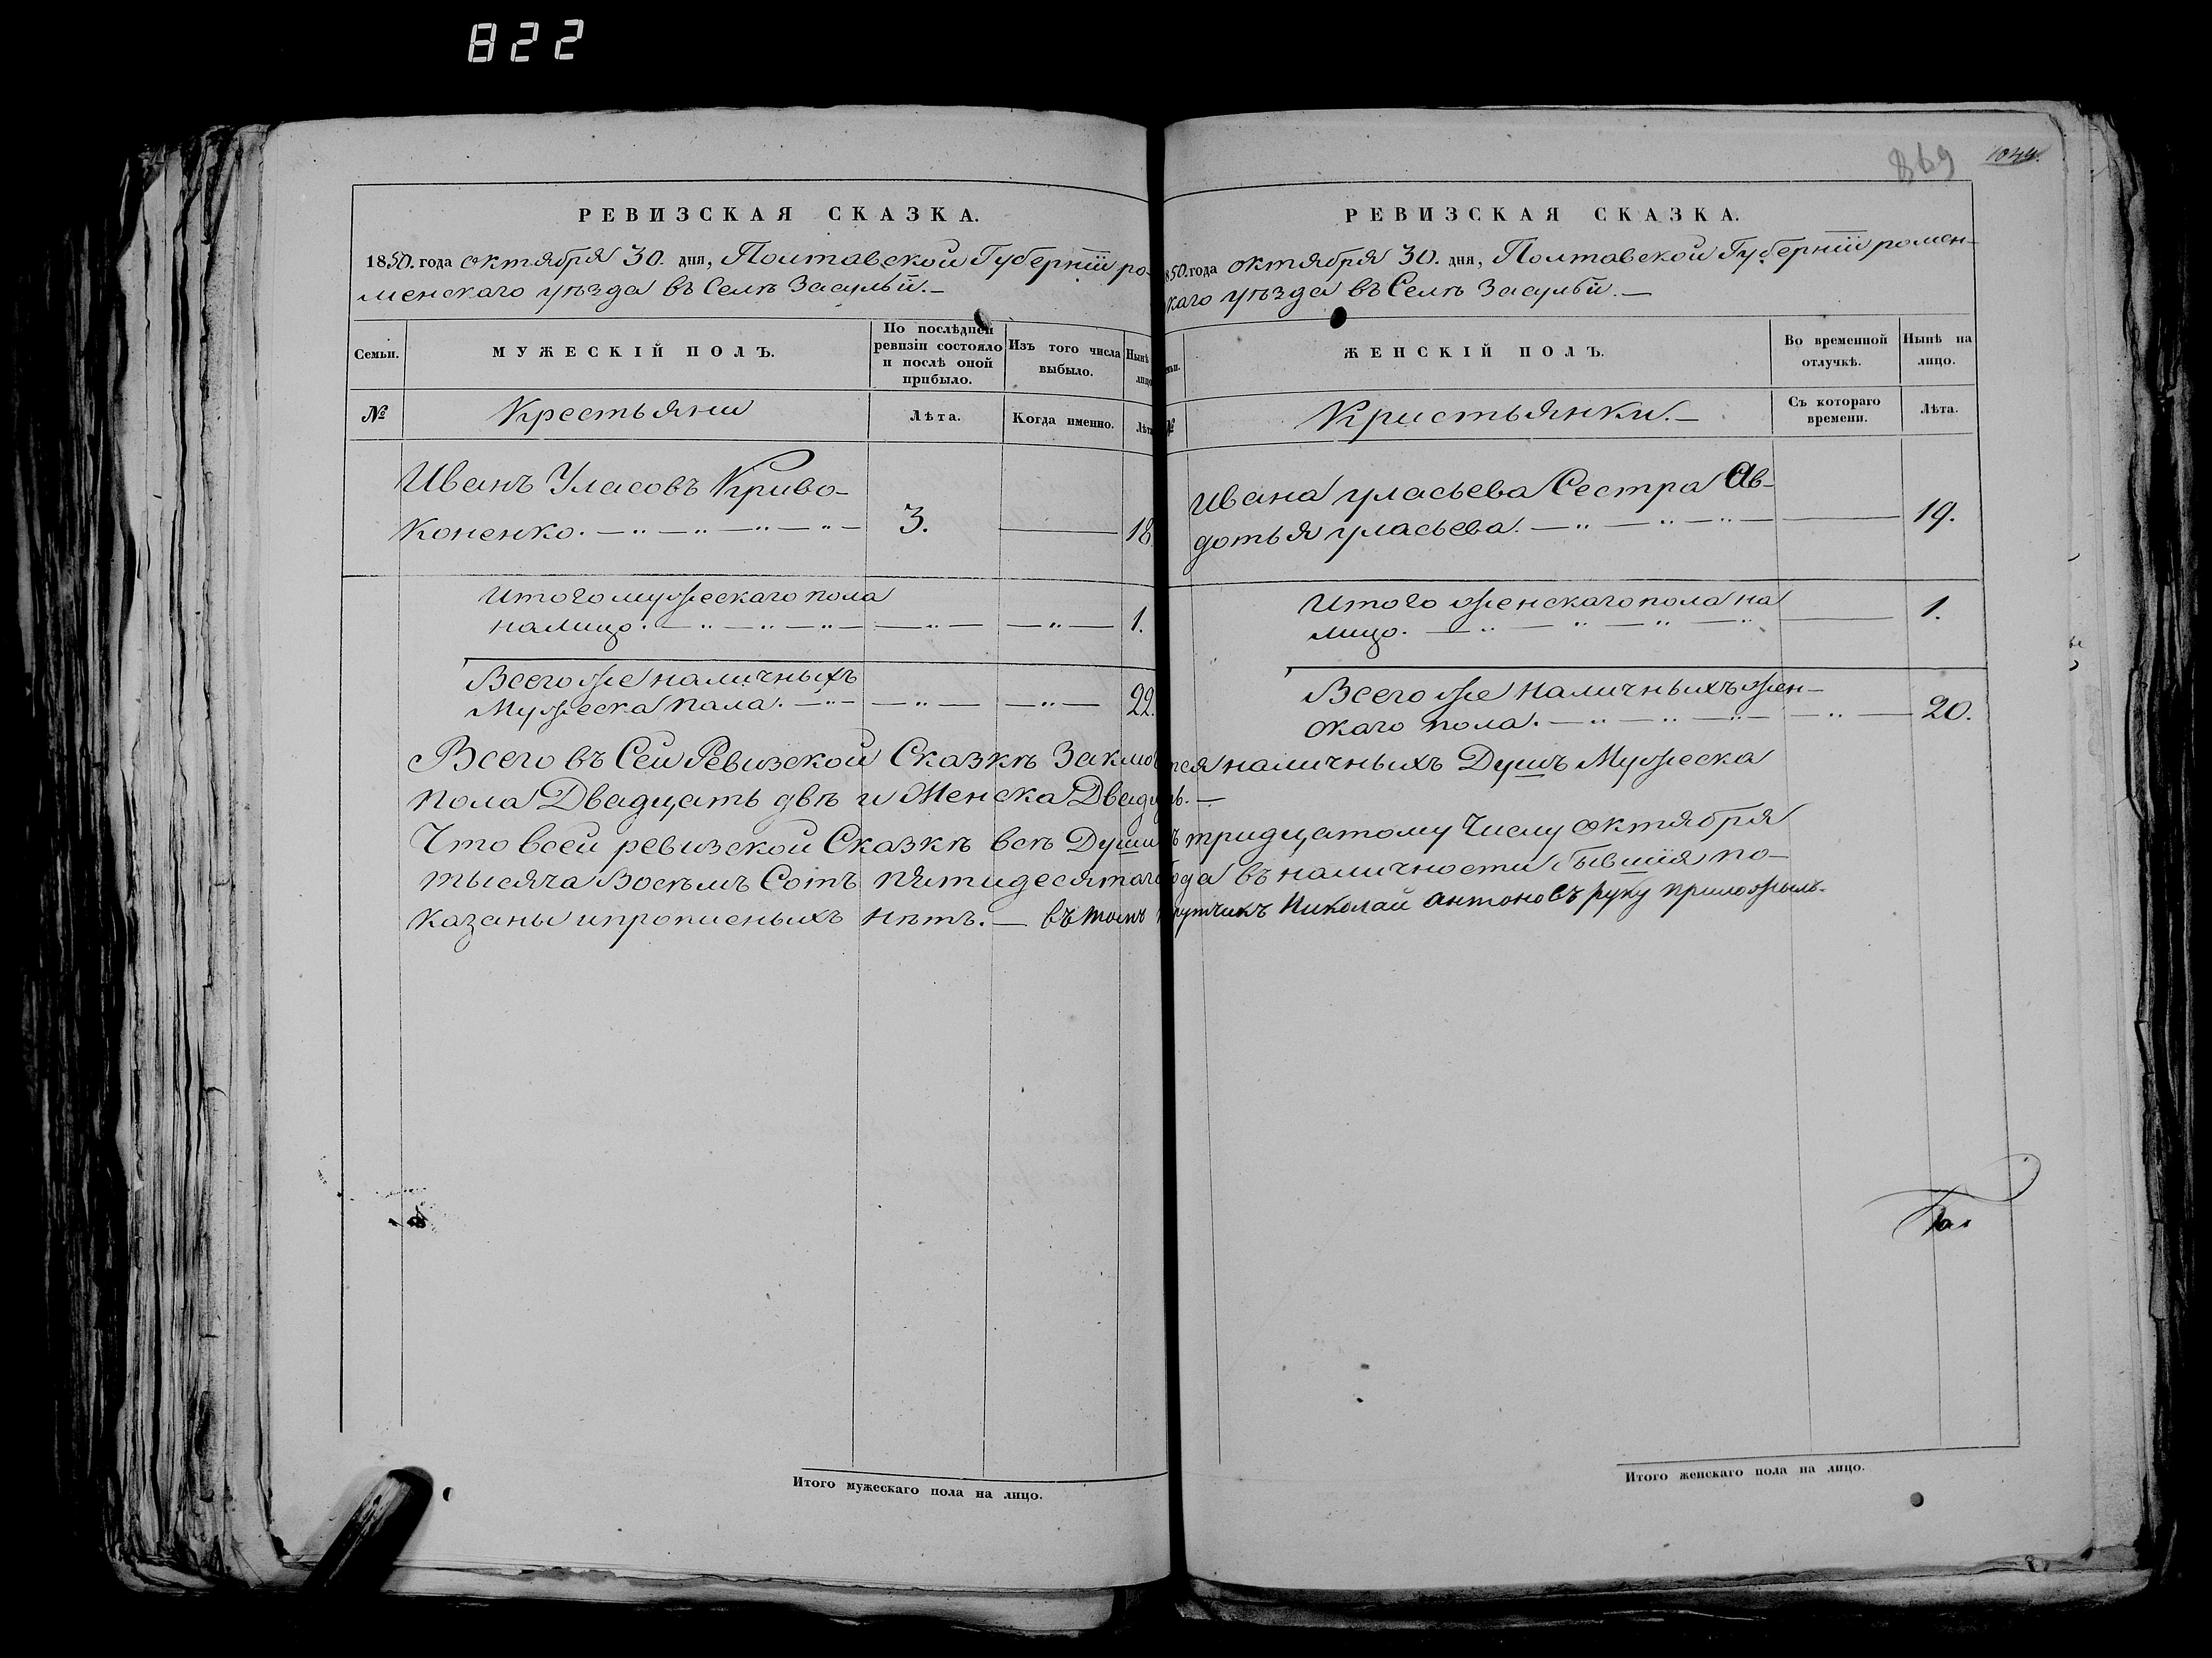 822
869 1044.
РЕВИЗСКАЯ СКАЗКА.
1850. года октября 30. дня, Полтавской Губернїи ро-
менскаго уѣзда въ Селѣ Засульи. —
Семьи.
МУЖЕСКІЙ ПОЛЪ.
По послѣдней
ревизіи состояло
и послѣ оной
прибыло.
Изъ того числа
выбыло.
Нынѣ
лицо
№
Крестьяни
Лѣта.
Когда именно.
Лѣта
Иванъ Уласовъ Криво-
коненко. — „ — „ — „ — „ — 3. — 18.
Итого мужескаго пола
налицо. — „ — „ — „ — — „ — — „ — 1.
Всего же наличныхъ
Мужеска пала. — „ — — „ — — „ — 22.
РЕВИЗСКАЯ СКАЗКА.
850. года октября 30. дня, Полтавской Губернїи ромен-
каго уѣзда въ Селѣ Засульи. —
ЖЕНСКІЙ ПОЛЪ.
Во временной
отлучкѣ.
Нынѣ на
лицо.
№
Кристьянки. —
Съ котораго
времени.
Лѣта.
Ивана уласьева Сестра Ав-
дотья уласьева. — „ — „ — „ — — 19.
Итого женскаго пола на
лицо. — „ — „ — „ — „ — 1.
Всего же наличныхъ жен-
скаго пола. — „ — „ — „ — „ — 20.
Всего въ Сей Ревизской Сказкѣ Заключ тся наличныхъ Душъ Мужеска
пола Двадцать двѣ и Женска Двадц ть. —
Что всей ревизской Сказкѣ всѣ Души ъ тридцатому Числу октября
тысяча Восѣмъ Сотъ пятидесятаго года въ наличности бывшїя по-
казаны ипрописеныхъ нѣтъ. — въ томъ Николай антоновъ руку приложылъ.
Итого мужескаго пола на лицо.
Итого женскаго пола на лицо.